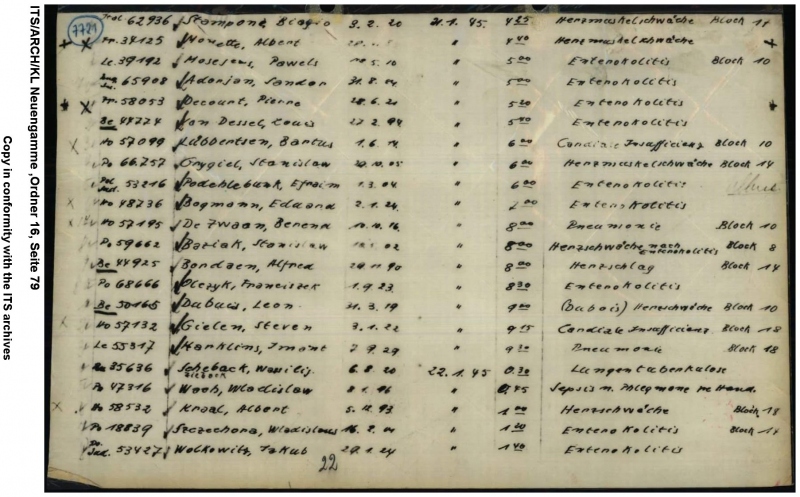 ITS/ARCH/KL Neuengamme ,Ordner 16, Seite 79
Copy in conformity with the ITS archives
7721
62936 Stampone, Biagio 3. 2. 20 21. 1. 45. 4 25 Herzmuskelschwäche Block 14
34125 Albert " 4 40 Herzmuskelschwäche
Le. 39192 Pawels 5. 10 " 5 00 Enterokolitis Block 10
65908 Adorjan, Sandor 31. 8. 04 " 5 00 Enterokolitis
58053 Decourt, Pierre 28. 6. 21 " Enterokolitis
Be 44774 Van Dessel, Louis 27. 2. 94 " 5 40 Enterokolitis
Ho 57099 Lübbertsen, Bartus 1. 6. 14 " 6 00 Cardiale Insufficienz Block 10
Po 66.757 Grygiel, Stanislaw 05 " 6 00 Herzmuskelschwäche Block 14
53216 Efraim 1. 3. 04 " 6 00 Enterokolitis
Ho 48736 Bogmann, Eduard 2. 1. 24. " 00 Enterokolitis
Ho 57195 De Zwaan, Berend 16 " 8 00 Pneumonie Block 10
Po 59662 Baziak, Stanislaw 02 " 8 00 Herzschwäche nach Enterokolitis Block 8
Be 44925 Bondaen, Alfred 90 " 8 00 Herzschlag Block 14
Po 68666 Olczyk, Franciszek 1. 9. 23 " 8 30 Enterokolitis
Be 50165 Dubuis, Leon 21. 3. 19 " 9 00 (Dubois) Herzschwäche Block 10
Ho 57132 Gielen, Steven 3. 1. 22 " 9 15 Cardiale Insufficienz Block 18
Le 55317 Kanklins, Imant 7. 9. 29 " 9 Pneumonie Block 18
35636 Scheback, Wassilij 6. 8. 20 22. 1. 45 0. 30 Lungentuberkulose
Po 47316 Woch, Wladislaw 96 " 0, 45 Sepsis n. Phlegmone re Hand.
Ho 58532 Kraal, Albert 5. 93 " 1 00 Herzschwäche Block 18
Po 18839 Szczechora, Wladislaus 16. 2. 04 " 1 Enterokolitis Block 14
53427 Wolkowitz, Jakub 29. 1. 24 " 1 40 Enterokolitis
22